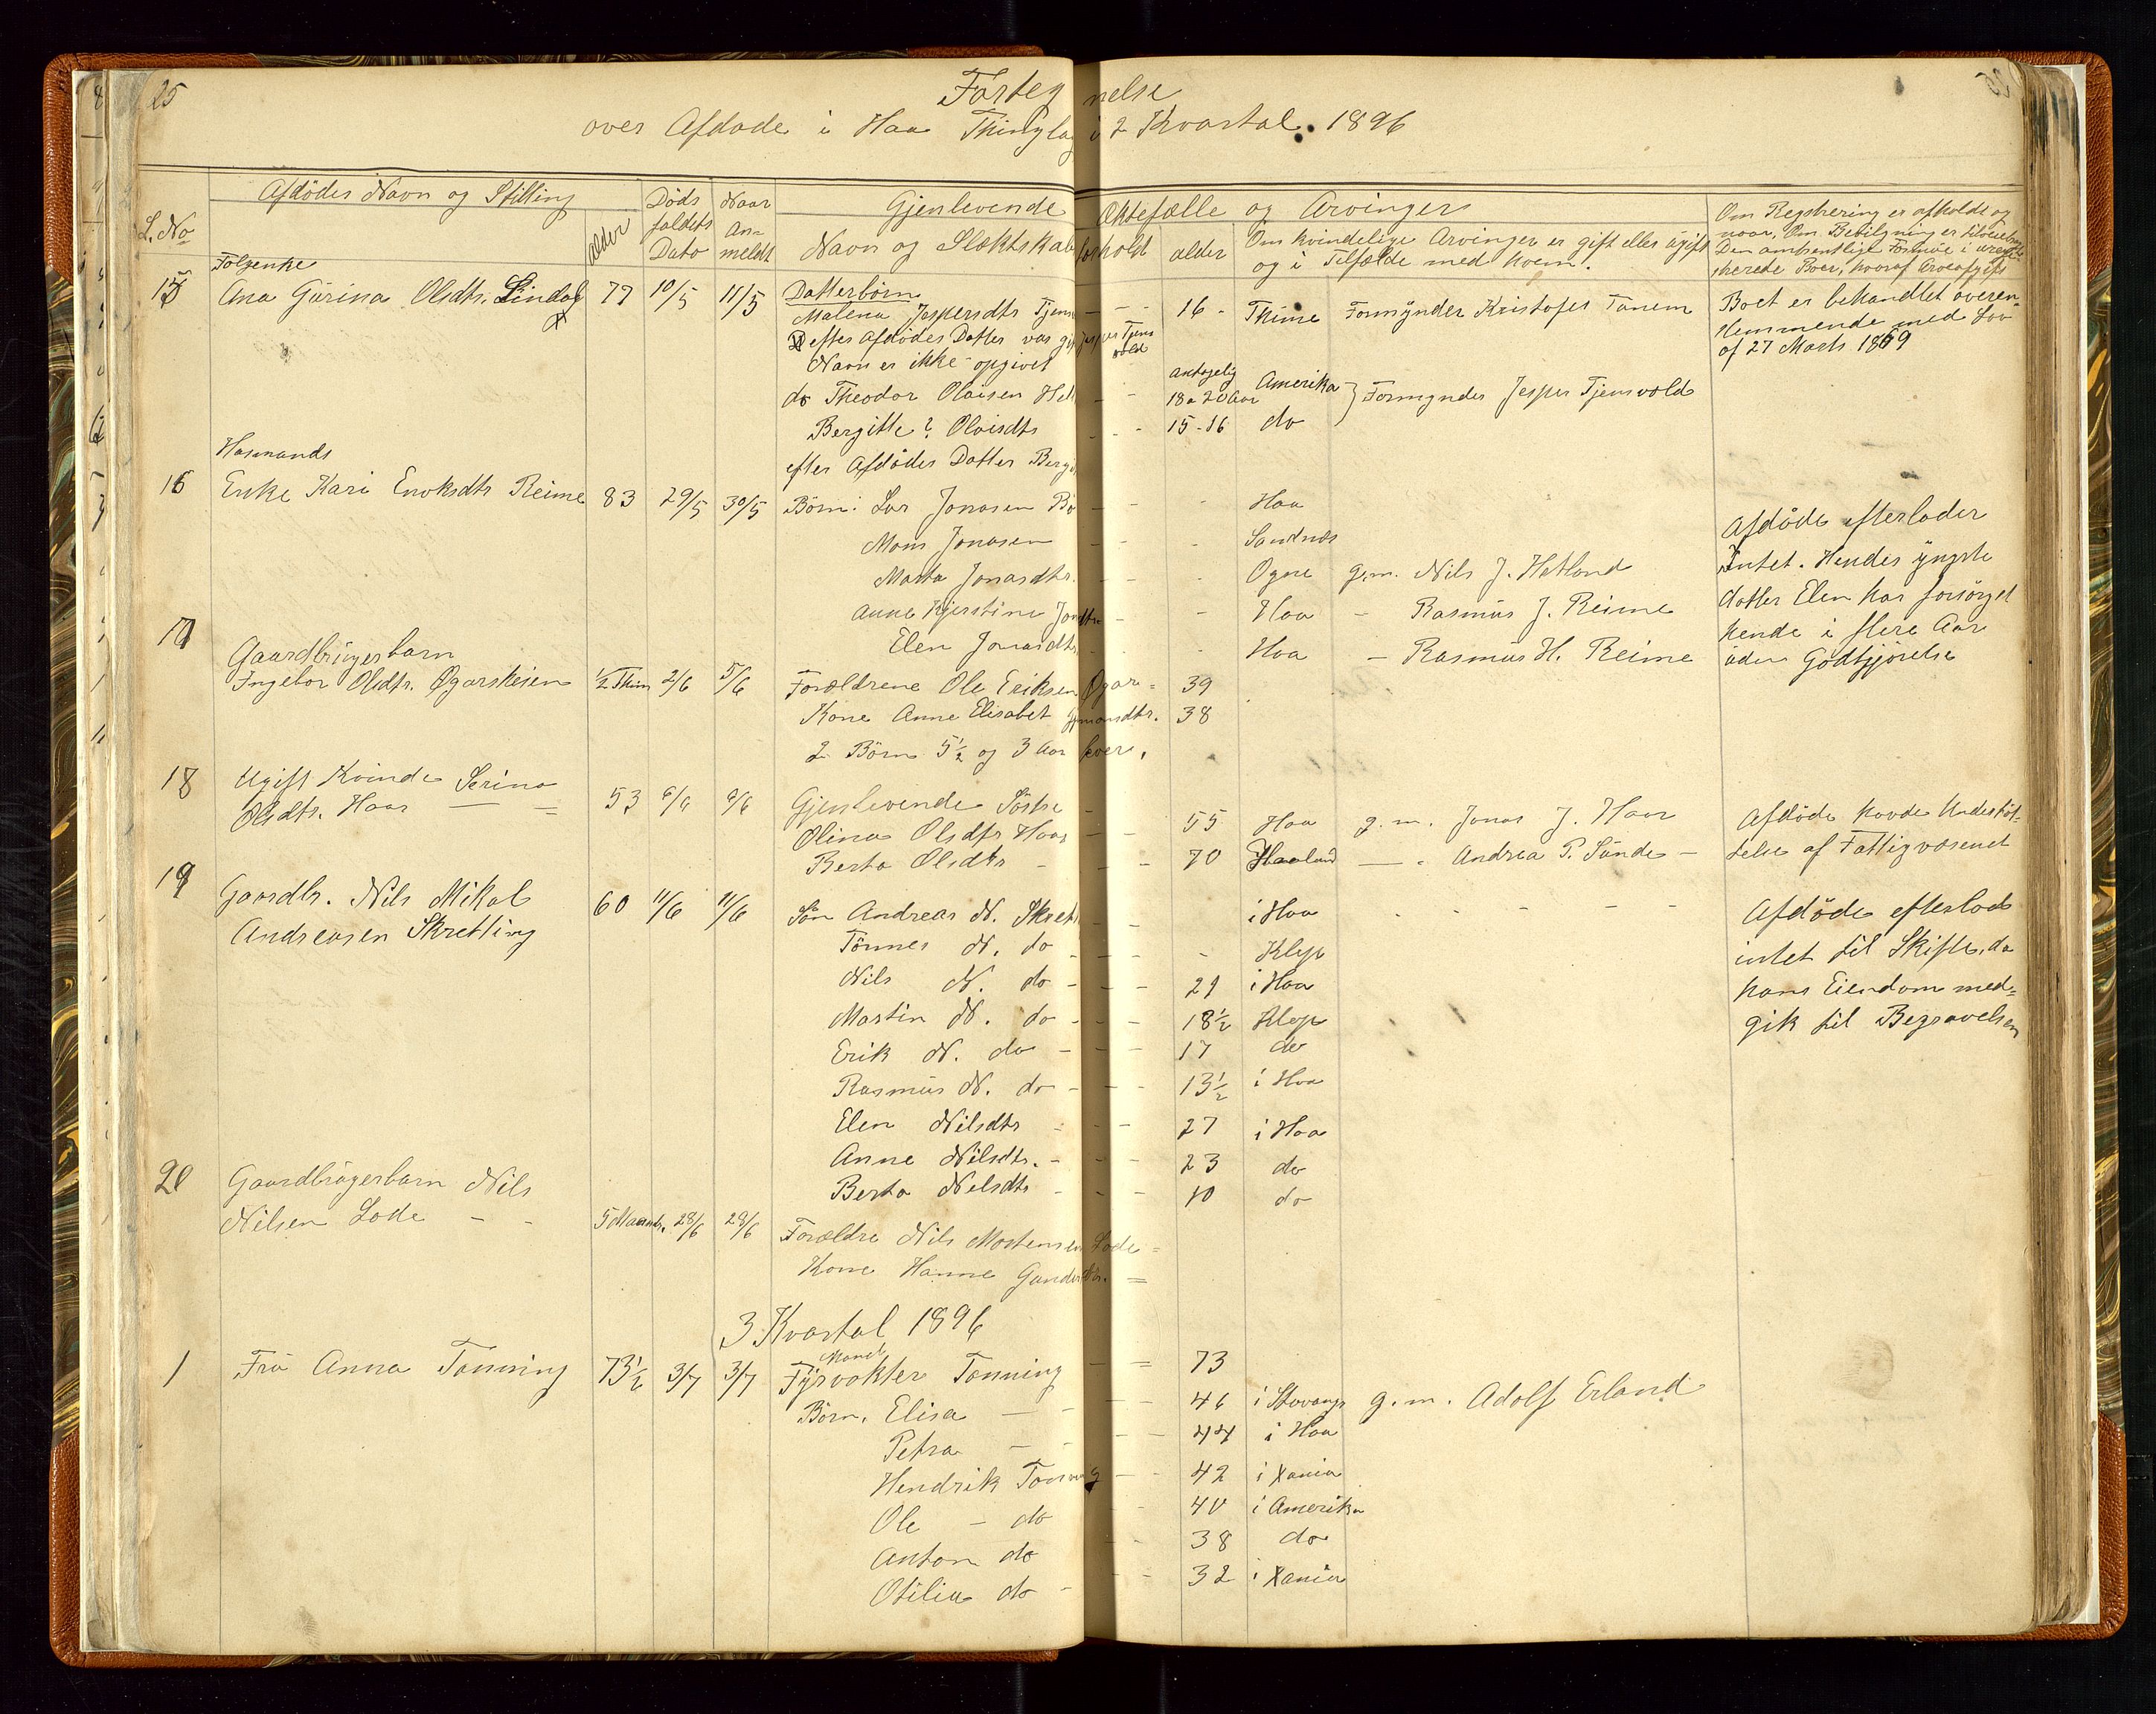 25
Fortegnelse
over Afdøde i Haa Thinglag i 2 Kvartal. 1896
L. No
Afdødes Navn og Stilling
alder
Døds
faldets
Dato
Naar
An-
meldt
Gjenlevende Æktefælle og Arvinger
Navn og Slæktskabsforhold
alder
Om kvindelige Arvinger er gift eller ugift
og i Tilfælde med hvem.
Om Registrering er afholdt og
naar, Om Bevilgning er
Den omtrentlige Formue i
Boer, hvoraf Arveafgift
15
Følgenke
Ana Gurina Olsdtr. Lindal 77 10/5 11/5
Datterbørn
Malena Jespersdtr Tjens - - 16 - Thime Formynder Kristofer Tanem
efter Afdødes Datter var gift Jesper Tjens
vold
Navn er ikke opgivet
do Theodor Olaisen - - antagelig
18 a 20 Aar Amerika } Formynder Jesper Tjensvold
Bergitte? Olaisdtr - - 15-16 do
efter Afdødes Datter
Boet er behandlet overen-
stemmende med Lov
af 27 Marts 1869
Husmands
16 Enke Kari Enoksdtr Reime 83 29/5 30/5 Børn: Lar Jonasen - - Haa
Mons Jonasen - - Sandnæs
Marta Jonasdtr. - - Ogne g.m. Nils J. Hetland
Anne Kjerstine Jonsdtr - - Haa - Rasmus J. Reime
Elen Jonasdtr - - Haa - Rasmus H. Reime
Afdøde efterlader
Intet. Hendes yngste
datter Elen har forsørget
hende i flere Aar
uden Godtgjørelse
17
Gaardbrugerbarn
Ingebor Olsdtr. Ogarsheien 1/2 Thim 2/6 5/6 Forældrene Ole Eriksen Ogar= 39
Kone Anne Elisabet 38
2 Børn 5 1/2 og 3 Aar lever.
18 Ugift Kvinde Serina
Olsdtr. Haar - = 53 6/6 9/6 Gjenlevende Søstre
Olina Olsdtr Haar - - 55 Haa g.m. Jonas J. Haar
Berta Olsdtr - - 70 Haaland - Andrea P. Sunde -
Afdøde havde Understøt-
telse af Fattigvæsenet
19 Gaardbr. Nils Mikal
Andreasen Skretting 60 11/6 11/6 Søn Andreas N. Skrett - - i Haa
Tønnes N. do - - Klep
Nils N. do - - 21 i Haa
Martin N. do - - 18 1/2 Klep
Erik N. do - - 17 do
Rasmus N. do - - 13 1/2 i Haa
Elen Nilsdtr - - 27 i Haa
Anne Nilsdtr. - - 23 do
Berta Nilsdtr - - 10 do
Afdøde efterlod
intet til Skifte, da
hans Eiendom med=
gik til Begravelsen
20 Gaardbrugerbarn Nils
Nilsen Lode - - 5 Maand. 28/6 29/6 Forældre Nils Mortensen Lode =
Kone Hanne =
3 Kvartal 1896
1 Fru Anna Tanning 73 1/2 3/7 3/7 Mand
Fyrvokter Tanning - = 73
Børn. Elisa - - 46 i Stavang g.m. Adolf Erland
Petra - - 44 i Haa
Hendrik Tanning - - 42 i Xania
Ole - do - 40 i Amerika
Anton do - 38 do
Otilia do - 32 i Xania